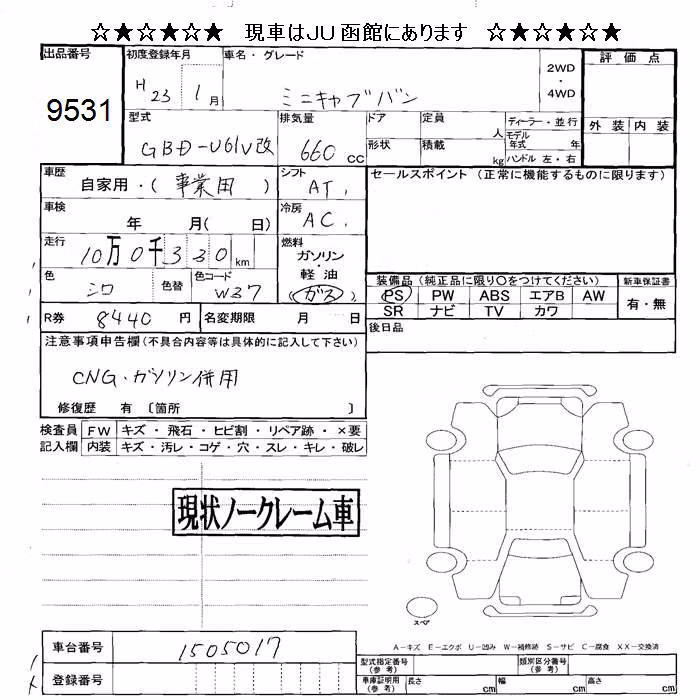 ☆★☆★☆★ 現車はJU函館にあります ☆★☆★☆★
出品番号 9531
初度登録年月 H23年 1月
車名・グレード ミニキャブバン
2WD・4WD
評価点
外装 内装
型式 GBD-U61V改
排気量 660cc
ドア 定員 人 ディーラー・並行
形状 積載 kg モデル年式 年
ハンドル 左・右
車歴 自家用・(事業用)
シフト AT
セールスポイント (正常に機能するものに限ります)
車検 年 月( 日)
冷房 AC
走行 10万0千330km
燃料 ガソリン・軽油 (ガス)
色 シロ 色替 色コード W37
装備品 (純正品に限り○をつけてください) 新車保証書
PS PW ABS エアB AW 有・無
SR ナビ TV カワ
R券 8440円 名変期限 月 日
後日品
注意事項申告欄 (不具合内容等は具体的に記入して下さい)
CNG・ガソリン併用
修復歴 有 〔箇所 〕
検査員 FW キズ・飛石・ヒビ割・リペア跡・×要
記入欄 内装 キズ・汚レ・コゲ・穴・スレ・キレ・破レ
現状ノークレーム車
スペア
A-キズ E-エクボ U-凹み W-補修跡 S-サビ C-腐食 XX-交換済
車台番号 1505017
型式指定番号 (参考) 類別区分番号 (参考)
登録番号
車庫証明用 (参考) 長さ cm 幅 cm 高さ cm